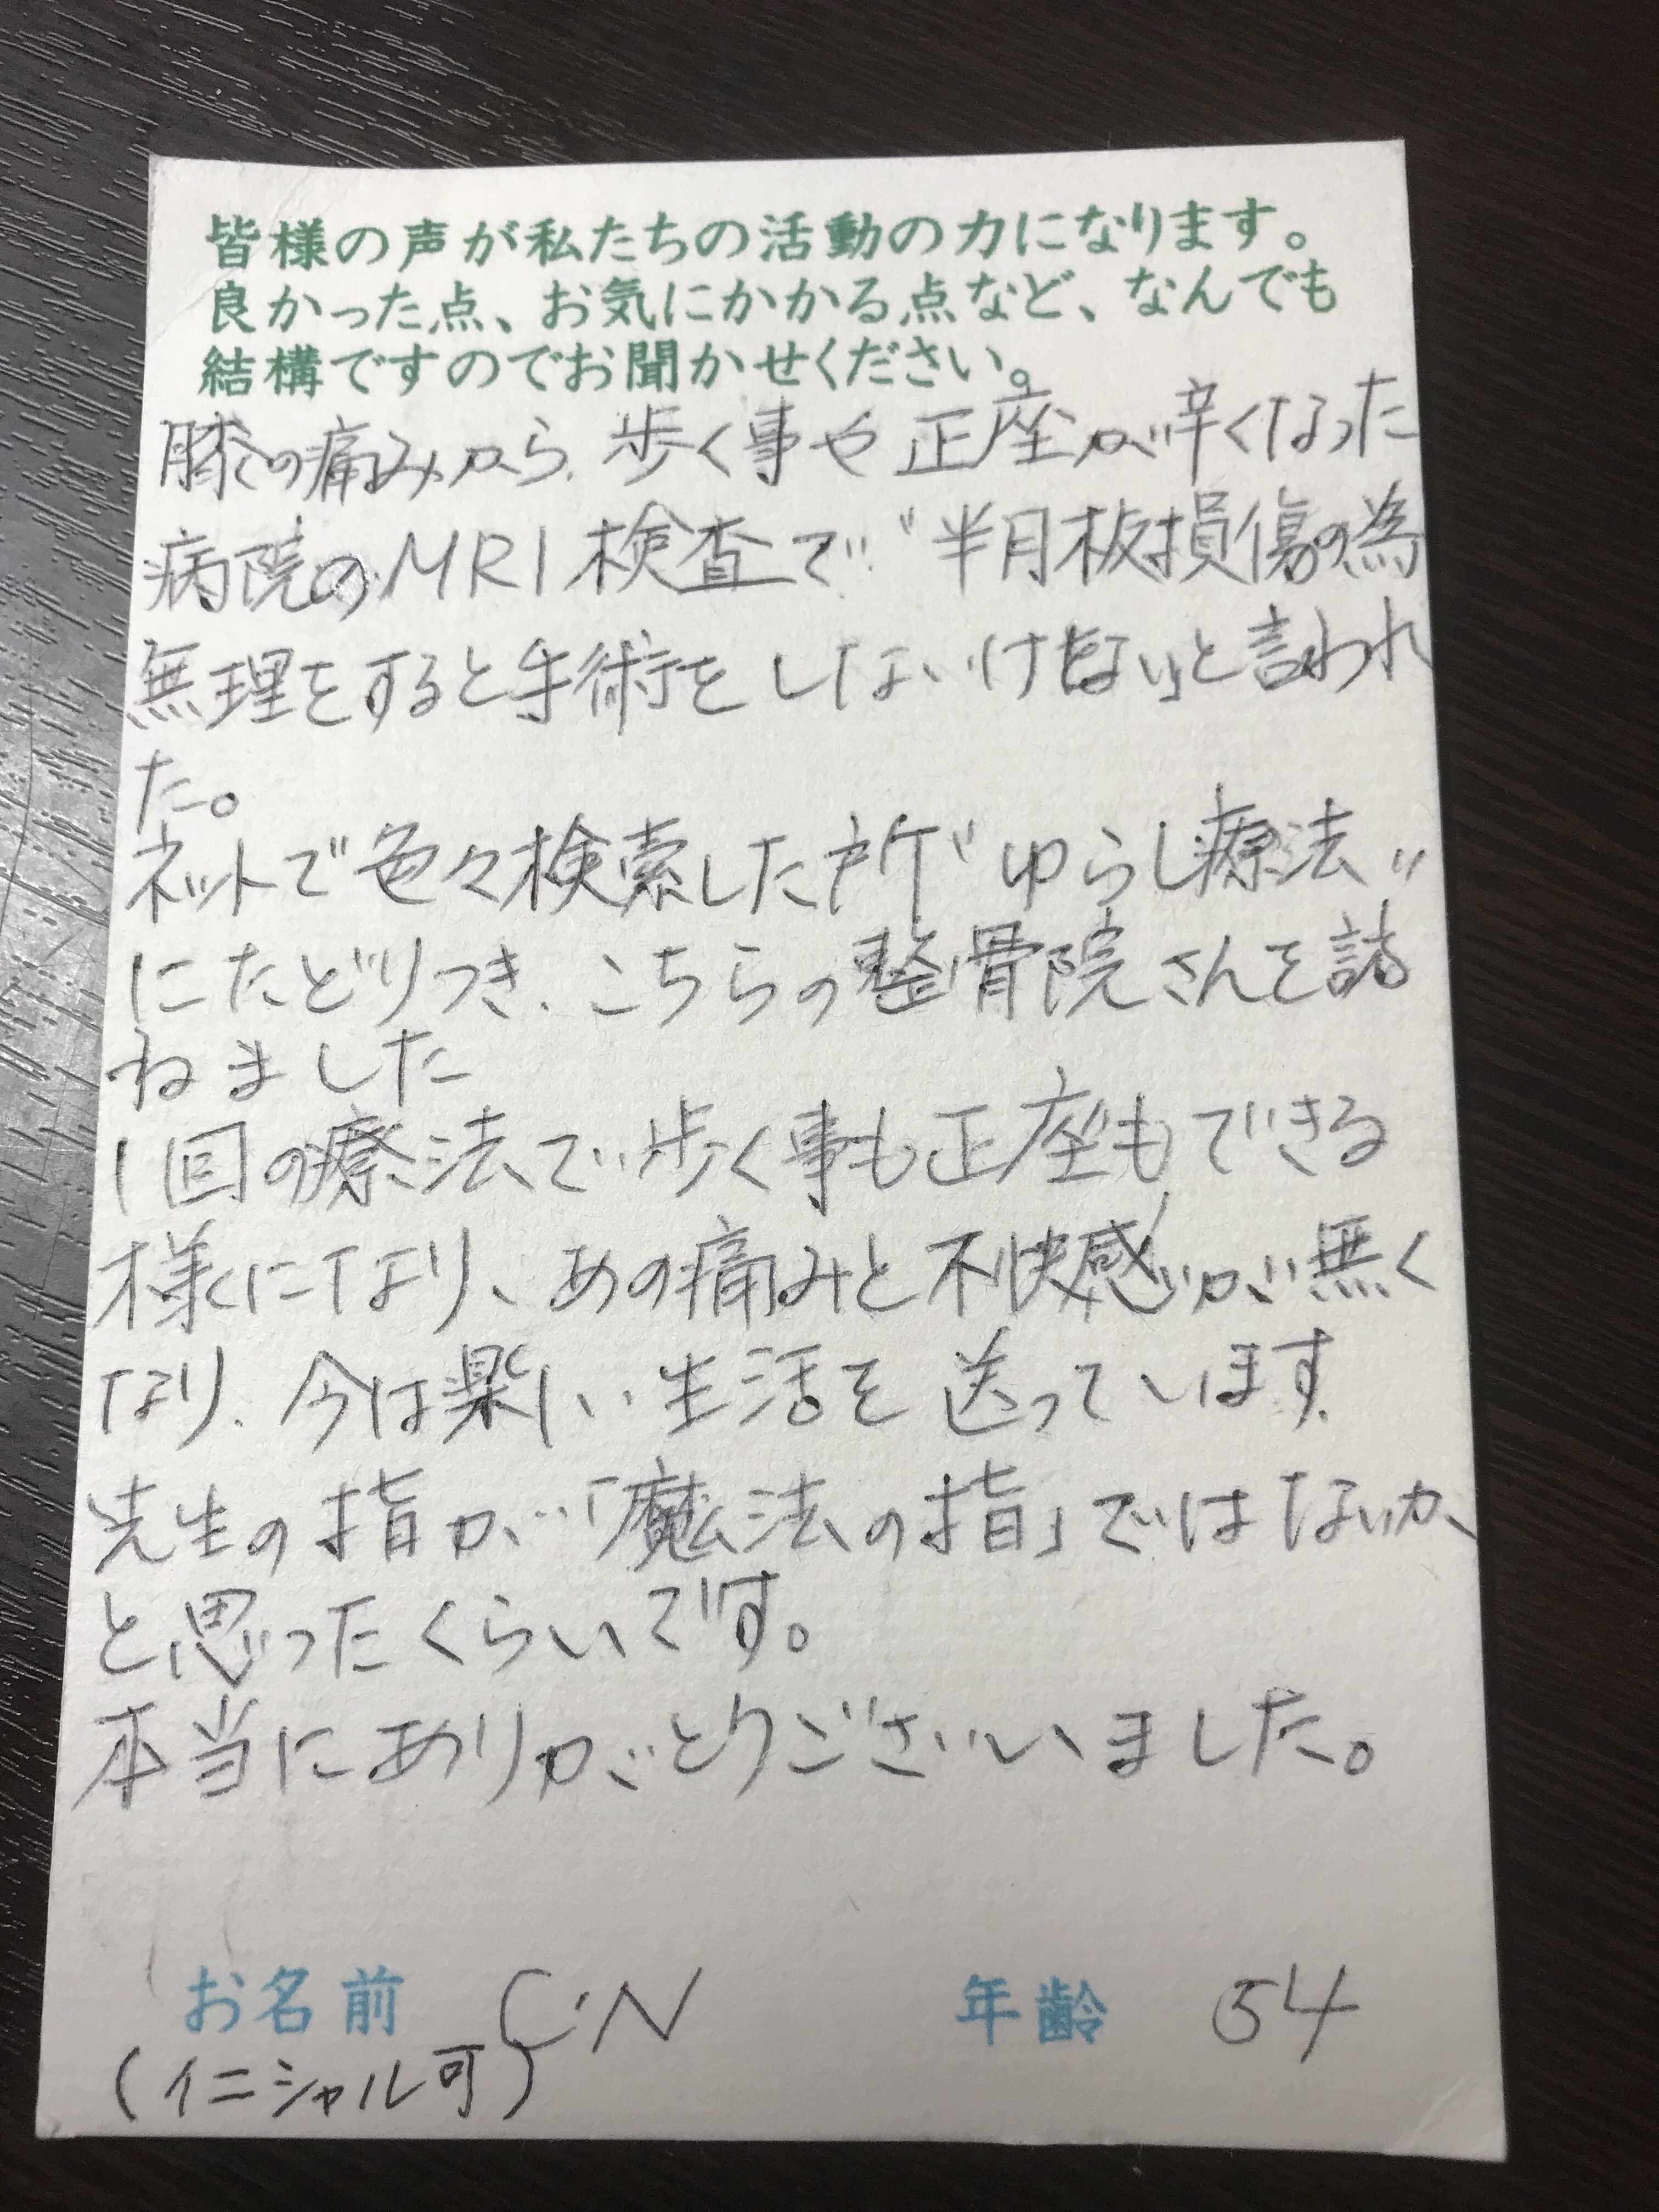 皆様の声が私たちの活動の力になります。
良かった点、お気にかかる点など、なんでも
結構ですのでお聞かせください。
膝の痛みから、歩く事や正座が辛くなった
病院のMRI検査で〝半月板損傷の為
無理をすると手術をしないけない」と言われ
た。
ネットで色々検索した所〝ゆらし療法〟
にたどりつき、こちらの整骨院さんを訪
ねました
1回の療法で歩く事も正座もできる
様になり、あの痛みと不快感が無く
なり、今は楽しい生活を送っています。
先生の指が「魔法の指」ではないか、
と思ったくらいです。
本当にありがとうございました。
お名前 C.N 年齢 54
(イニシャル可)